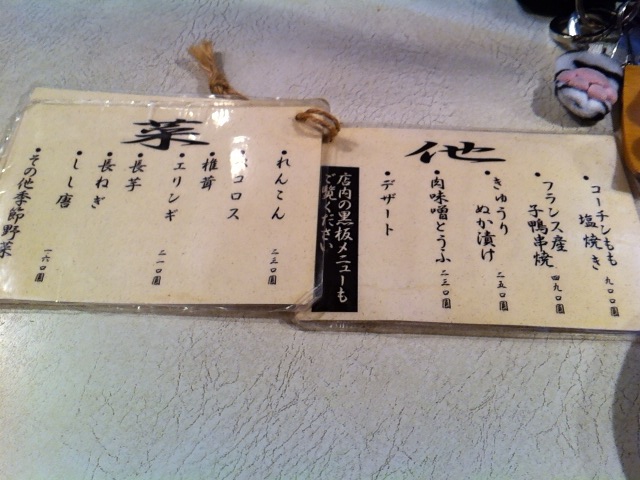 他
・コーチンもも
塩焼き 九〇〇円
・フランス産
子鴨串焼 四九〇円
・きゅうり
ぬか漬け 二五〇円
・肉味噌とうふ 二三〇円
・デザート
店内の黒板メニューも
ご覧ください
菜
・れんこん 二三〇円
コロス
・椎茸
・エリンギ 二一〇円
・長芋
・長ねぎ
・しし唐
・その他季節野菜 一六〇円